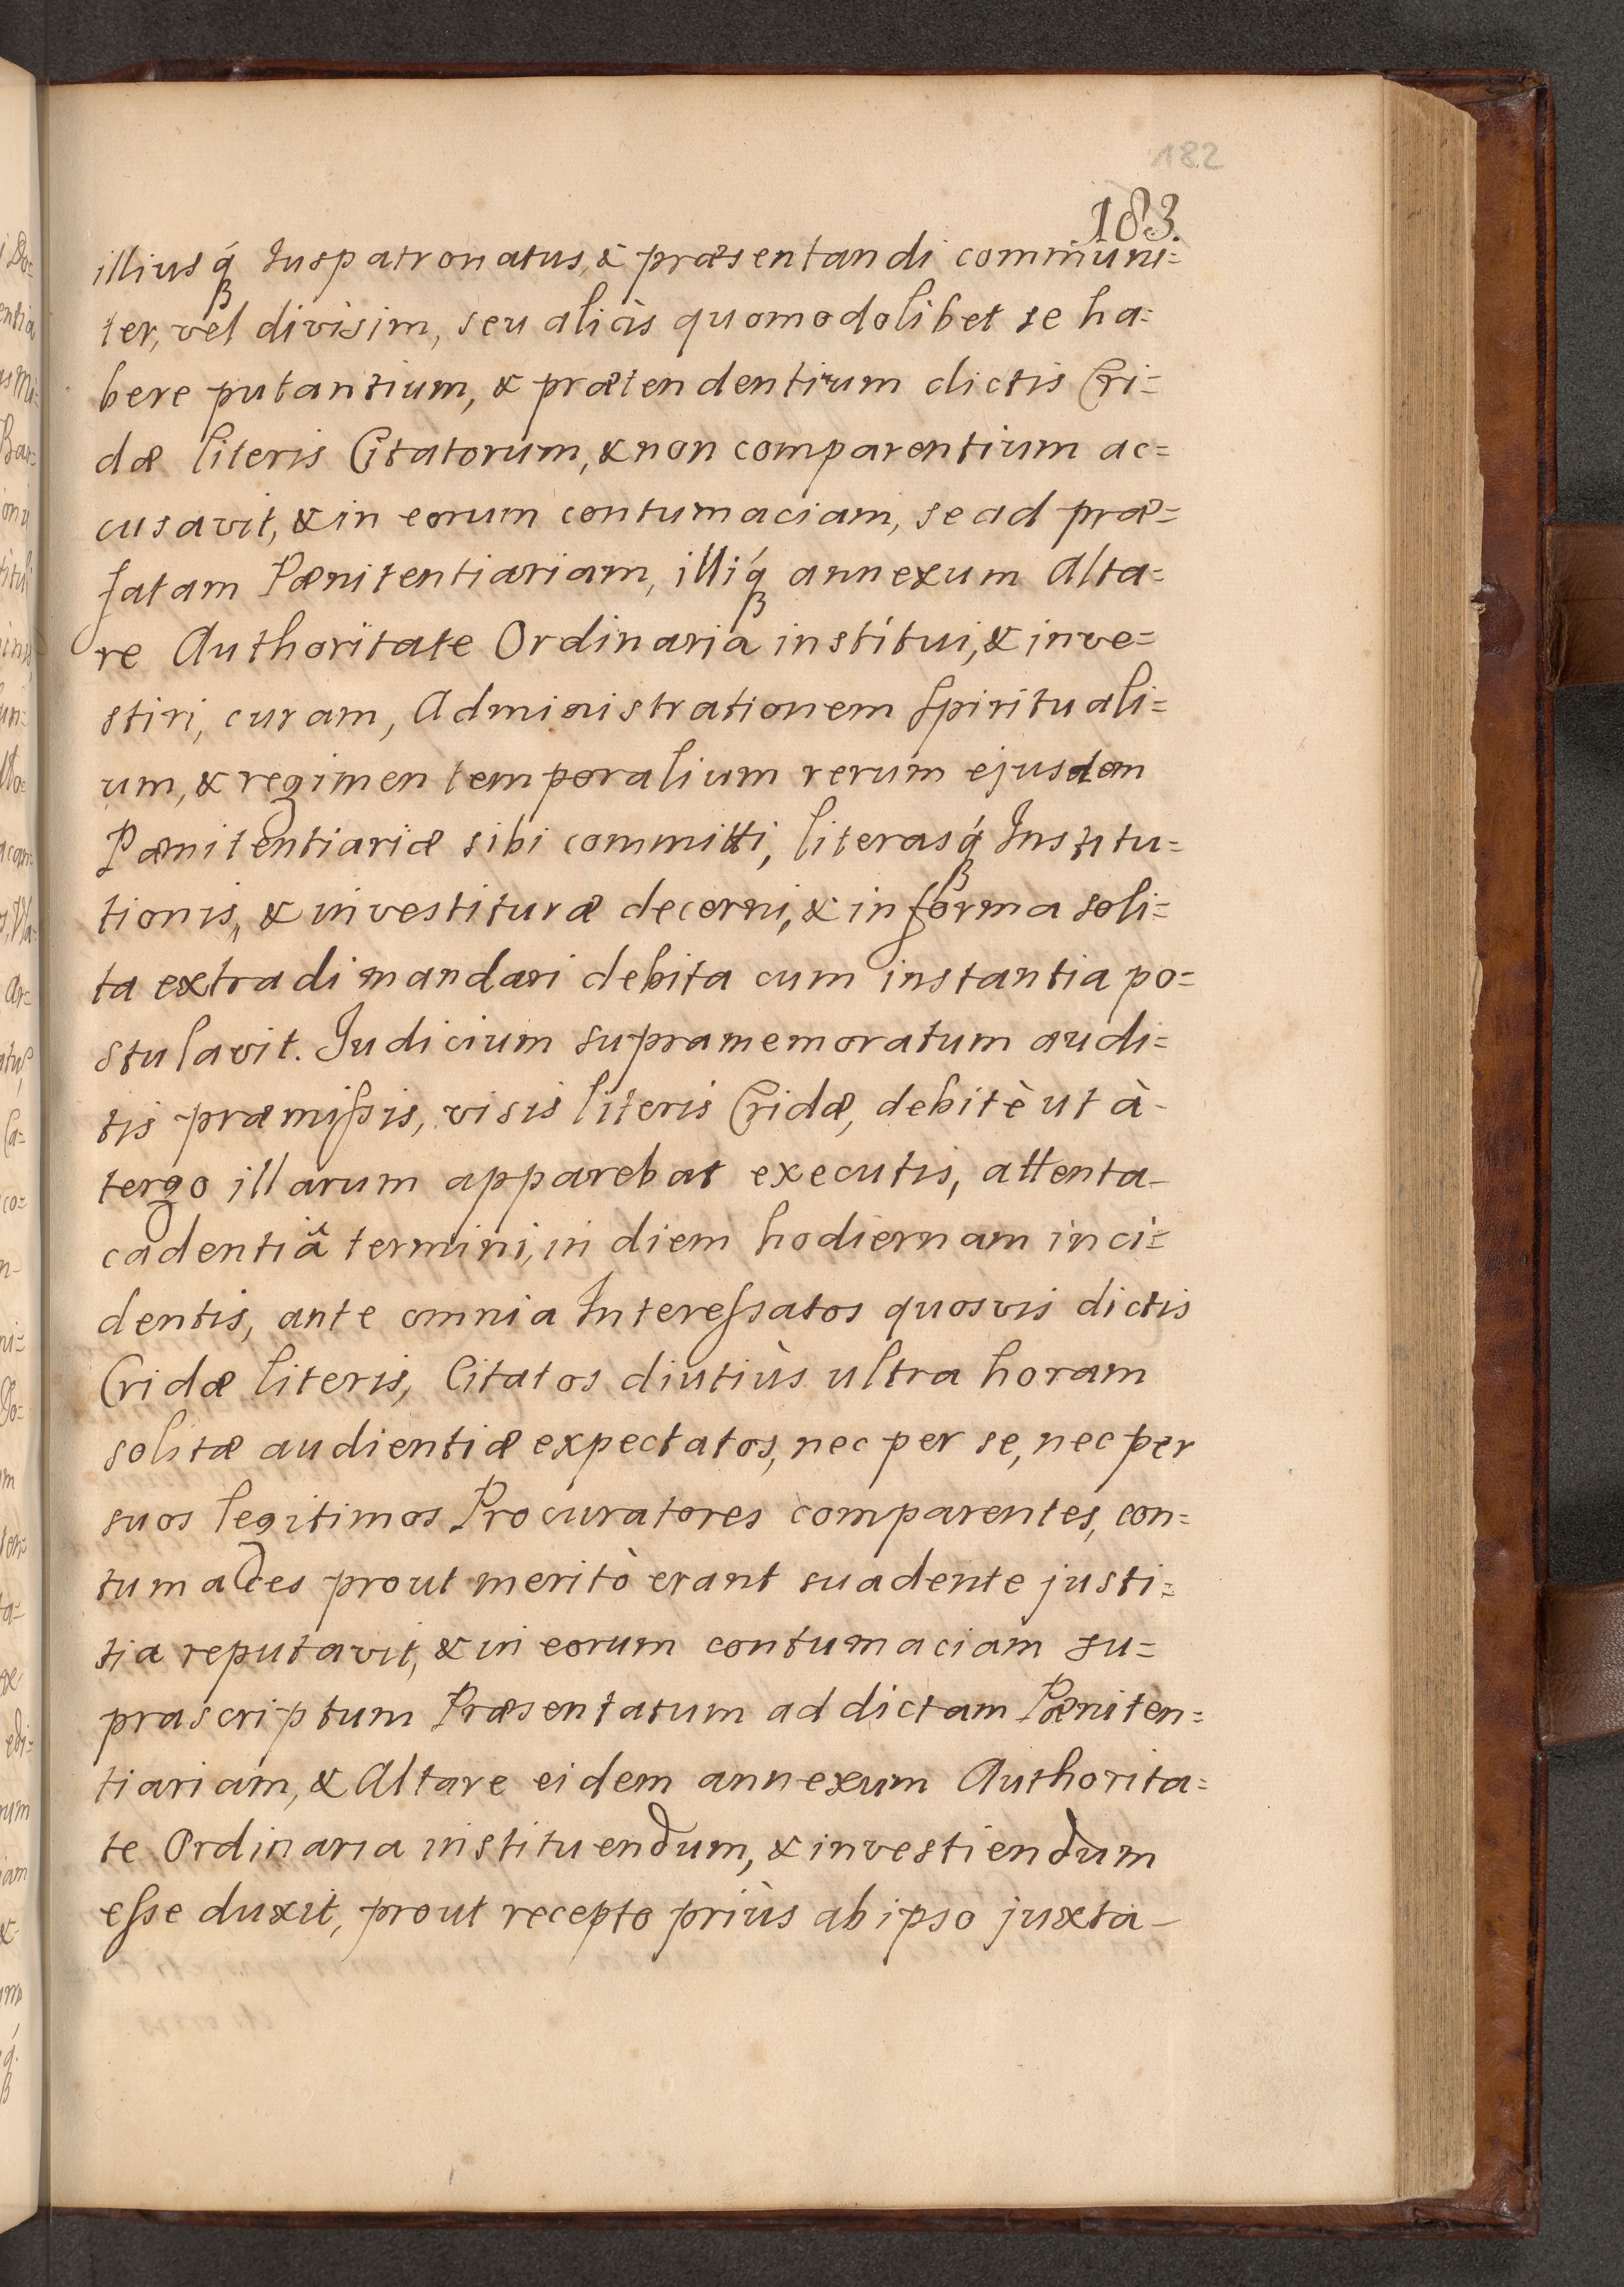 182
183.
illiusq́ꝫ Juspatronatus, & præsentandi communi=
ter, vel divisim, seu aliàs quomodolibet se ha=
bere putantium, & prætendentium dictis Cri=
dæ literis Citatorum, & non comparentium ac=
cusavit, & in eorum contumaciam, se ad præ=
fatam Pænitentiariam, illiq́ꝫ annexum Alta=
re Authoritate Ordinaria institui, & inve=
stiri, curam, Administrationem Spirituali=
um, & regimen temporalium rerum ejusdem
Pænitentiariæ sibi committi, literasq́ꝫ Institu=
tionis, & investituræ decerni, & in forma soli=
ta extradi mandari debita cum instantia po=
stulavit. Judicium supramemoratum audi=
tis præmissis, visis literis Cridæ, debitè ut à-
tergo illarum apparebat executis, attenta-
cadentiâ termini, in diem hodiernam inci=
dentis, ante omnia Interessatos quosvis dictis
Cridæ literis, Citatos diutiùs ultra horam
solitæ audientiæ expectatos, nec per se, nec per
suos legitimos Procuratores comparentes, con=
tumaces prout meritò erant suadente justi=
tia reputavit, & in eorum contumaciam su=
prascriptum Præsentatum ad dictam Pæniten=
tiariam, & Altare eidem annexum Authorita=
te Ordinaria instituendum, & investiendum
esse duxit, prout recepto priùs ab ipso juxta-